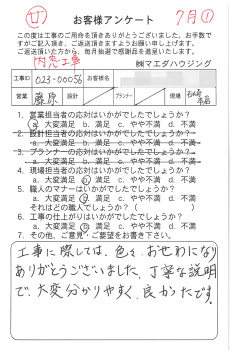 せ
お客様アンケート
7月①
この度は工事のご用命を頂きありがとうございました。お手数で
すがご記入頂き、ご返送頂きますようお願い申し上げます。
ご返送頂いた方から、毎月抽選で感謝品を進呈いたします。
内窓工事
㈱マエダハウジング
工事ID 023-00056 お客様名
営業 藤原 設計 プランナー 現場
1. 営業担当者の応対はいかがでしたでしょうか?
a. 大変満足 b. 満足 c. やや不満 d. 不満
2. 設計担当者の応対はいかがでしたでしょうか?
a. 大変満足 b. 満足 c. やや不満 d. 不満
3. プランナーの応対はいかがでしたでしょうか?
a. 大変満足 b. 満足 c. やや不満 d. 不満
4. 現場担当者の応対はいかがでしたでしょうか?
a. 大変満足 b. 満足 c. やや不満 d. 不満
5. 職人のマナーはいかがでしたでしょうか?
a. 大変満足 b. 満足 c. やや不満 d. 不満
それはどの職人でしょうか?( )
6. 工事の仕上がりはいかがでしたでしょうか?
a. 大変満足 b. 満足 c. やや不満 d. 不満
7. その他、ご意見・ご要望をお書き下さい。
工事に際しては、色々、おせわになり
ありがとうございました。丁寧な説明
で、大変分かりやすく、良かったです。